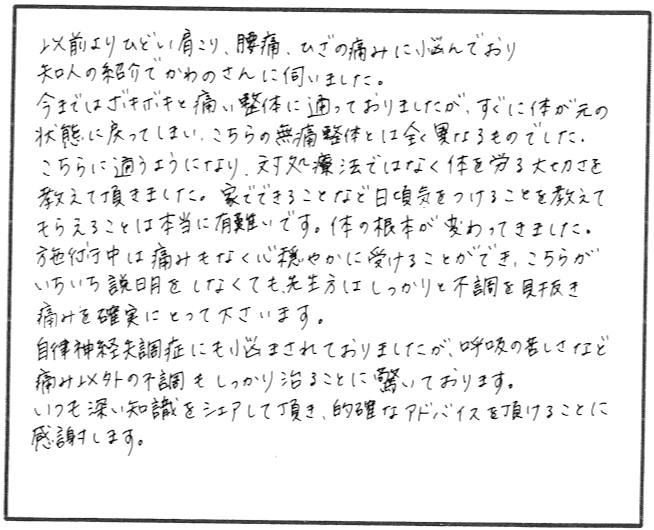 以前よりひどい肩こり、腰痛、ひざの痛みに悩んでおり
知人の紹介でかわのさんに伺いました。
今まではボキボキと痛い整体に通っておりましたが、すぐに体が元の
状態に戻ってしまい、こちらの無痛整体とは全く異なるものでした。
こちらに通うようになり、対処療法ではなく体を労る大切さを
教えて頂きました。家でできることなど日頃気をつけることを教えて
もらえることは本当に有難いです。体の根本が変わってきました。
施術中は痛みもなく心穏やかに受けることができ、こちらが
いちいち説明をしなくても、先生方はしっかりと不調を見抜き
痛みを確実にとって下さいます。
自律神経失調症にも悩まされておりましたが、呼吸の苦しさなど
痛み以外の不調もしっかり治ることに驚いております。
いつも深い知識をシェアして頂き、的確なアドバイスを頂けることに
感謝します。